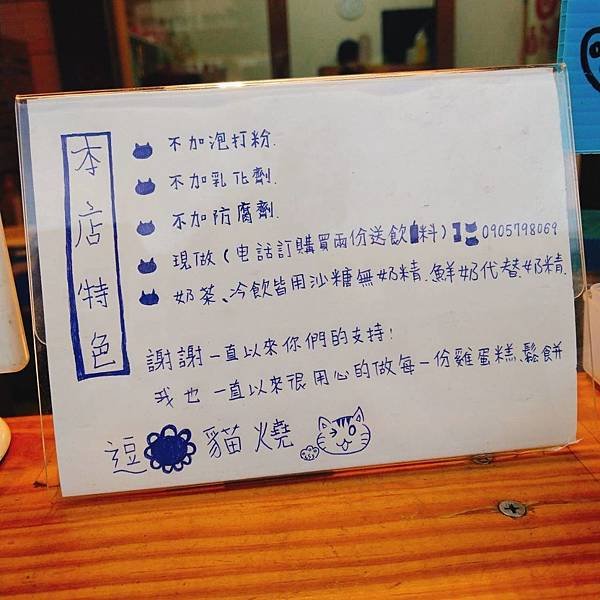 本店特色
不加泡打粉.
不加乳化劑.
不加防腐劑.
現做(电話訂購買兩份送飲料)0905798069
奶茶、冷飲皆用沙糖無奶精.鮮奶代替奶精.
謝謝一直以來你們的支持!
我也一直以來很用心的做每一份雞蛋糕.鬆餅
逗 貓燒